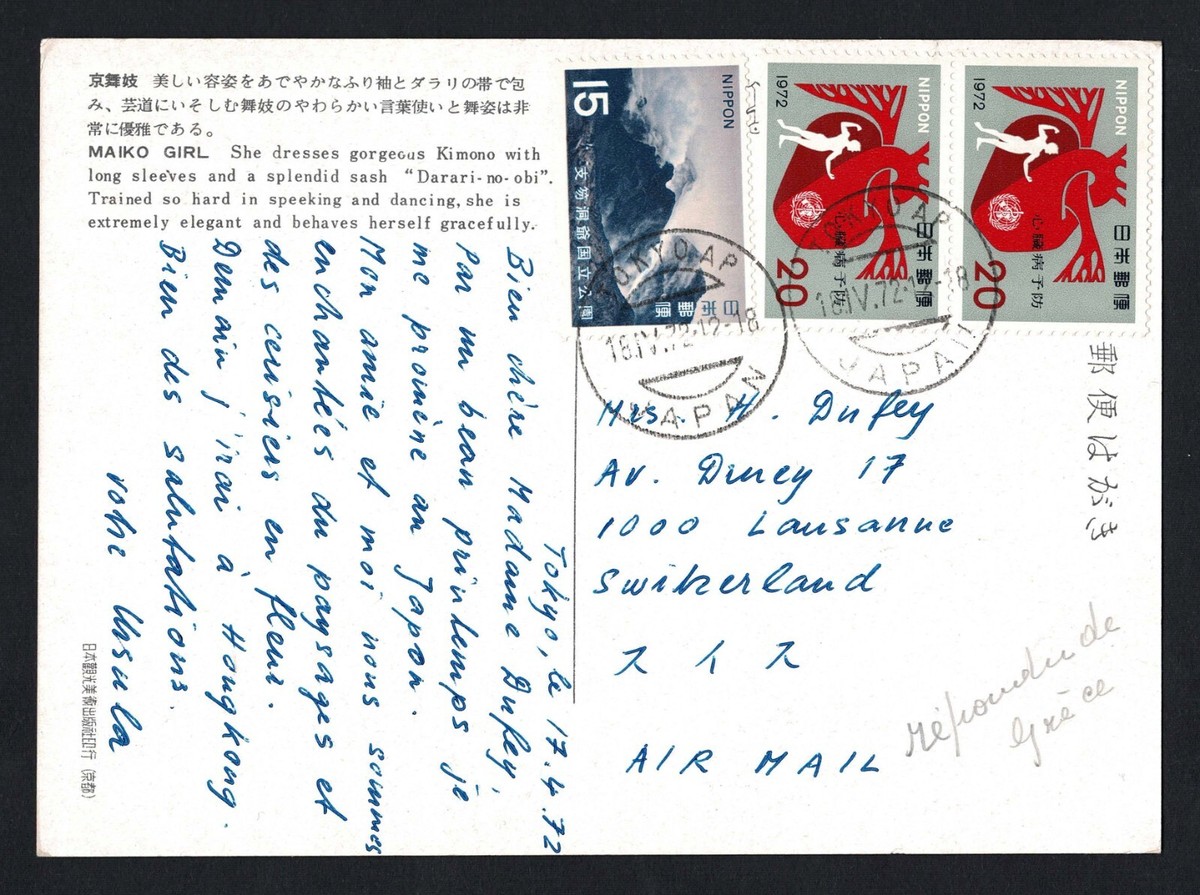 京舞妓 美しい容姿をあでやかなふり袖とダラリの帯で包
み、芸道にいそしむ舞妓のやわらかい言葉使いと舞姿は非
常に優雅である。
MAIKO GIRL She dresses gorgeous Kimono with
long sleeves and a splendid sash “Darari-no-obi”.
Trained so hard in speeking and dancing, she is
extremely elegant and behaves herself gracefully.
Tokyo, le 17.4.72
Bien chère Madame Dufey,
Par un beau printemps je
me promène au Japon.
Mon amie et moi nous sommes
enchantées du paysages et
des cerisiers en fleur.
Demain j'irai à Hongkong.
Bien des salutations.
votre Ursula
日本観光美術出版社印行 (京都)
15
NIPPON
支笏洞爺国立公園
日本郵便
1972
NIPPON
心臓病予防
日本郵便
20
1972
NIPPON
心臓病予防
日本郵便
20
TOKYO AP
16.IV.72.12-18
JAPAN
TOKYO AP
16.IV.72.12-18
JAPAN
郵便はがき
Mrs. H. Dufey
Av. 17
1000 Lausanne
Switzerland
スイス
AIR MAIL
répondu de
Grèce